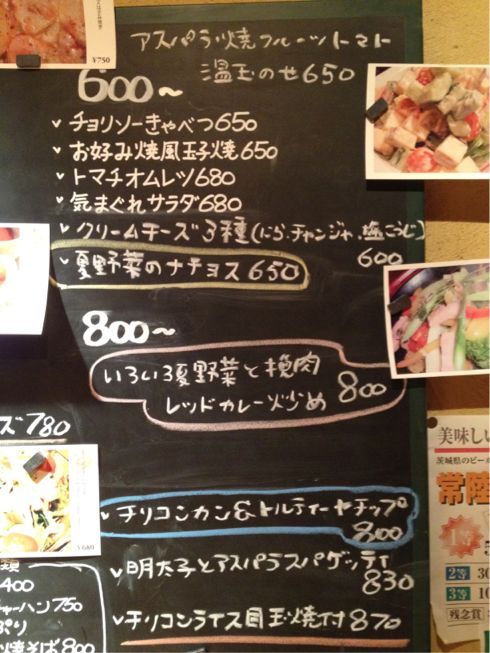 ¥750
アスパラ焼フルーツトマト
温玉のせ650
600~
チョリソーきゃべつ650
お好み焼風玉子焼650
トマチオムレツ680
気まぐれサラダ680
クリームチーズ3種(にら.チャンジャ.塩こうじ)
600
夏野菜のナチョス650
800~
いろいろ夏野菜と挽肉
レッドカレー炒め 800
ズ780
チリコンカン&トルティーヤチップ
800
明太子とアスパラスパゲッティ
830
チリコンライス目玉焼付870
¥680
400
チャーハン750
ぷり
焼そば800
美味しい
茨城県のビール
常陸
1等
2等 30
3等 10
残念賞